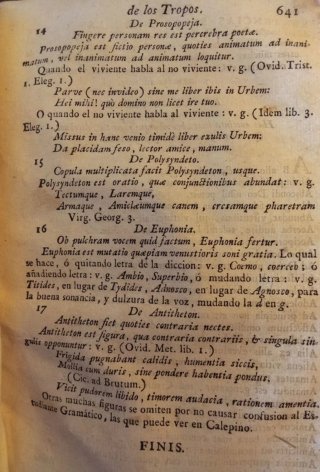 de los Tropos. 641
De Prosopopeja.
14 Fingere personam res est percrebra poetæ.
Prosopopeja est fictio personæ, quoties animatum ad inani-
matum, vel inanimatum ad animatum loquitur.
Quando el viviente habla al no viviente: v. g. (Ovid. Trist.
1. Eleg. 1.)
Parve (nec invideo) sine me liber ibis in Urbem:
Hei mihi! quò domino non licet ire tuo.
O quando el no viviente habla al viviente: v. g. (Idem lib. 3.
Eleg. 1.)
Missus in hanc venio timidè liber exulis Urbem:
Da placidam feso, lector amice, manum.
15 De Polysyndeto.
Copula multiplicata facit Polysyndeton, usque.
Polysyndeton est oratio, quæ conjunctionibus abundat: v. g.
Tectumque, Laremque,
Armaque, Amiclæumque canem, cresamque pharetram
Virg. Georg. 3.
16 De Euphonia.
Ob pulchram vocem quid factum, Euphonia fertur.
Euphonia est mutatio quæpiam venustioris soni gratia. Lo qual
se hace, ó quitando letra de la diccion: v. g. Coemo, coerceo; ó
añadiendo letra: v. g. Ambio, Superbio, ó mudando letra: v. g.
Titides, en lugar de Tydides, Adnosco, en lugar de Agnosco, para
la buena sonancia, y dulzura de la voz, mudando la d en g.
17 De Antitheton.
Antitheton fiet quoties contraria nectes.
Antitheton est figura, qua contraria contrariis, & singula sin-
gulis opponuntur: v. g. (Ovid. Met. lib. 1.)
Frigida pugnabant calidis, humentia siccis,
Mollia cum duris, sine pondere habentia pondus,
(Cic. ad Brutum.)
Vicit pudorem libido, timorem audacia, rationem amentia.
Otras muchas figuras se omiten por no causar confusion al Es-
tudiante Gramático, las que puede ver en Calepino.
FINIS.